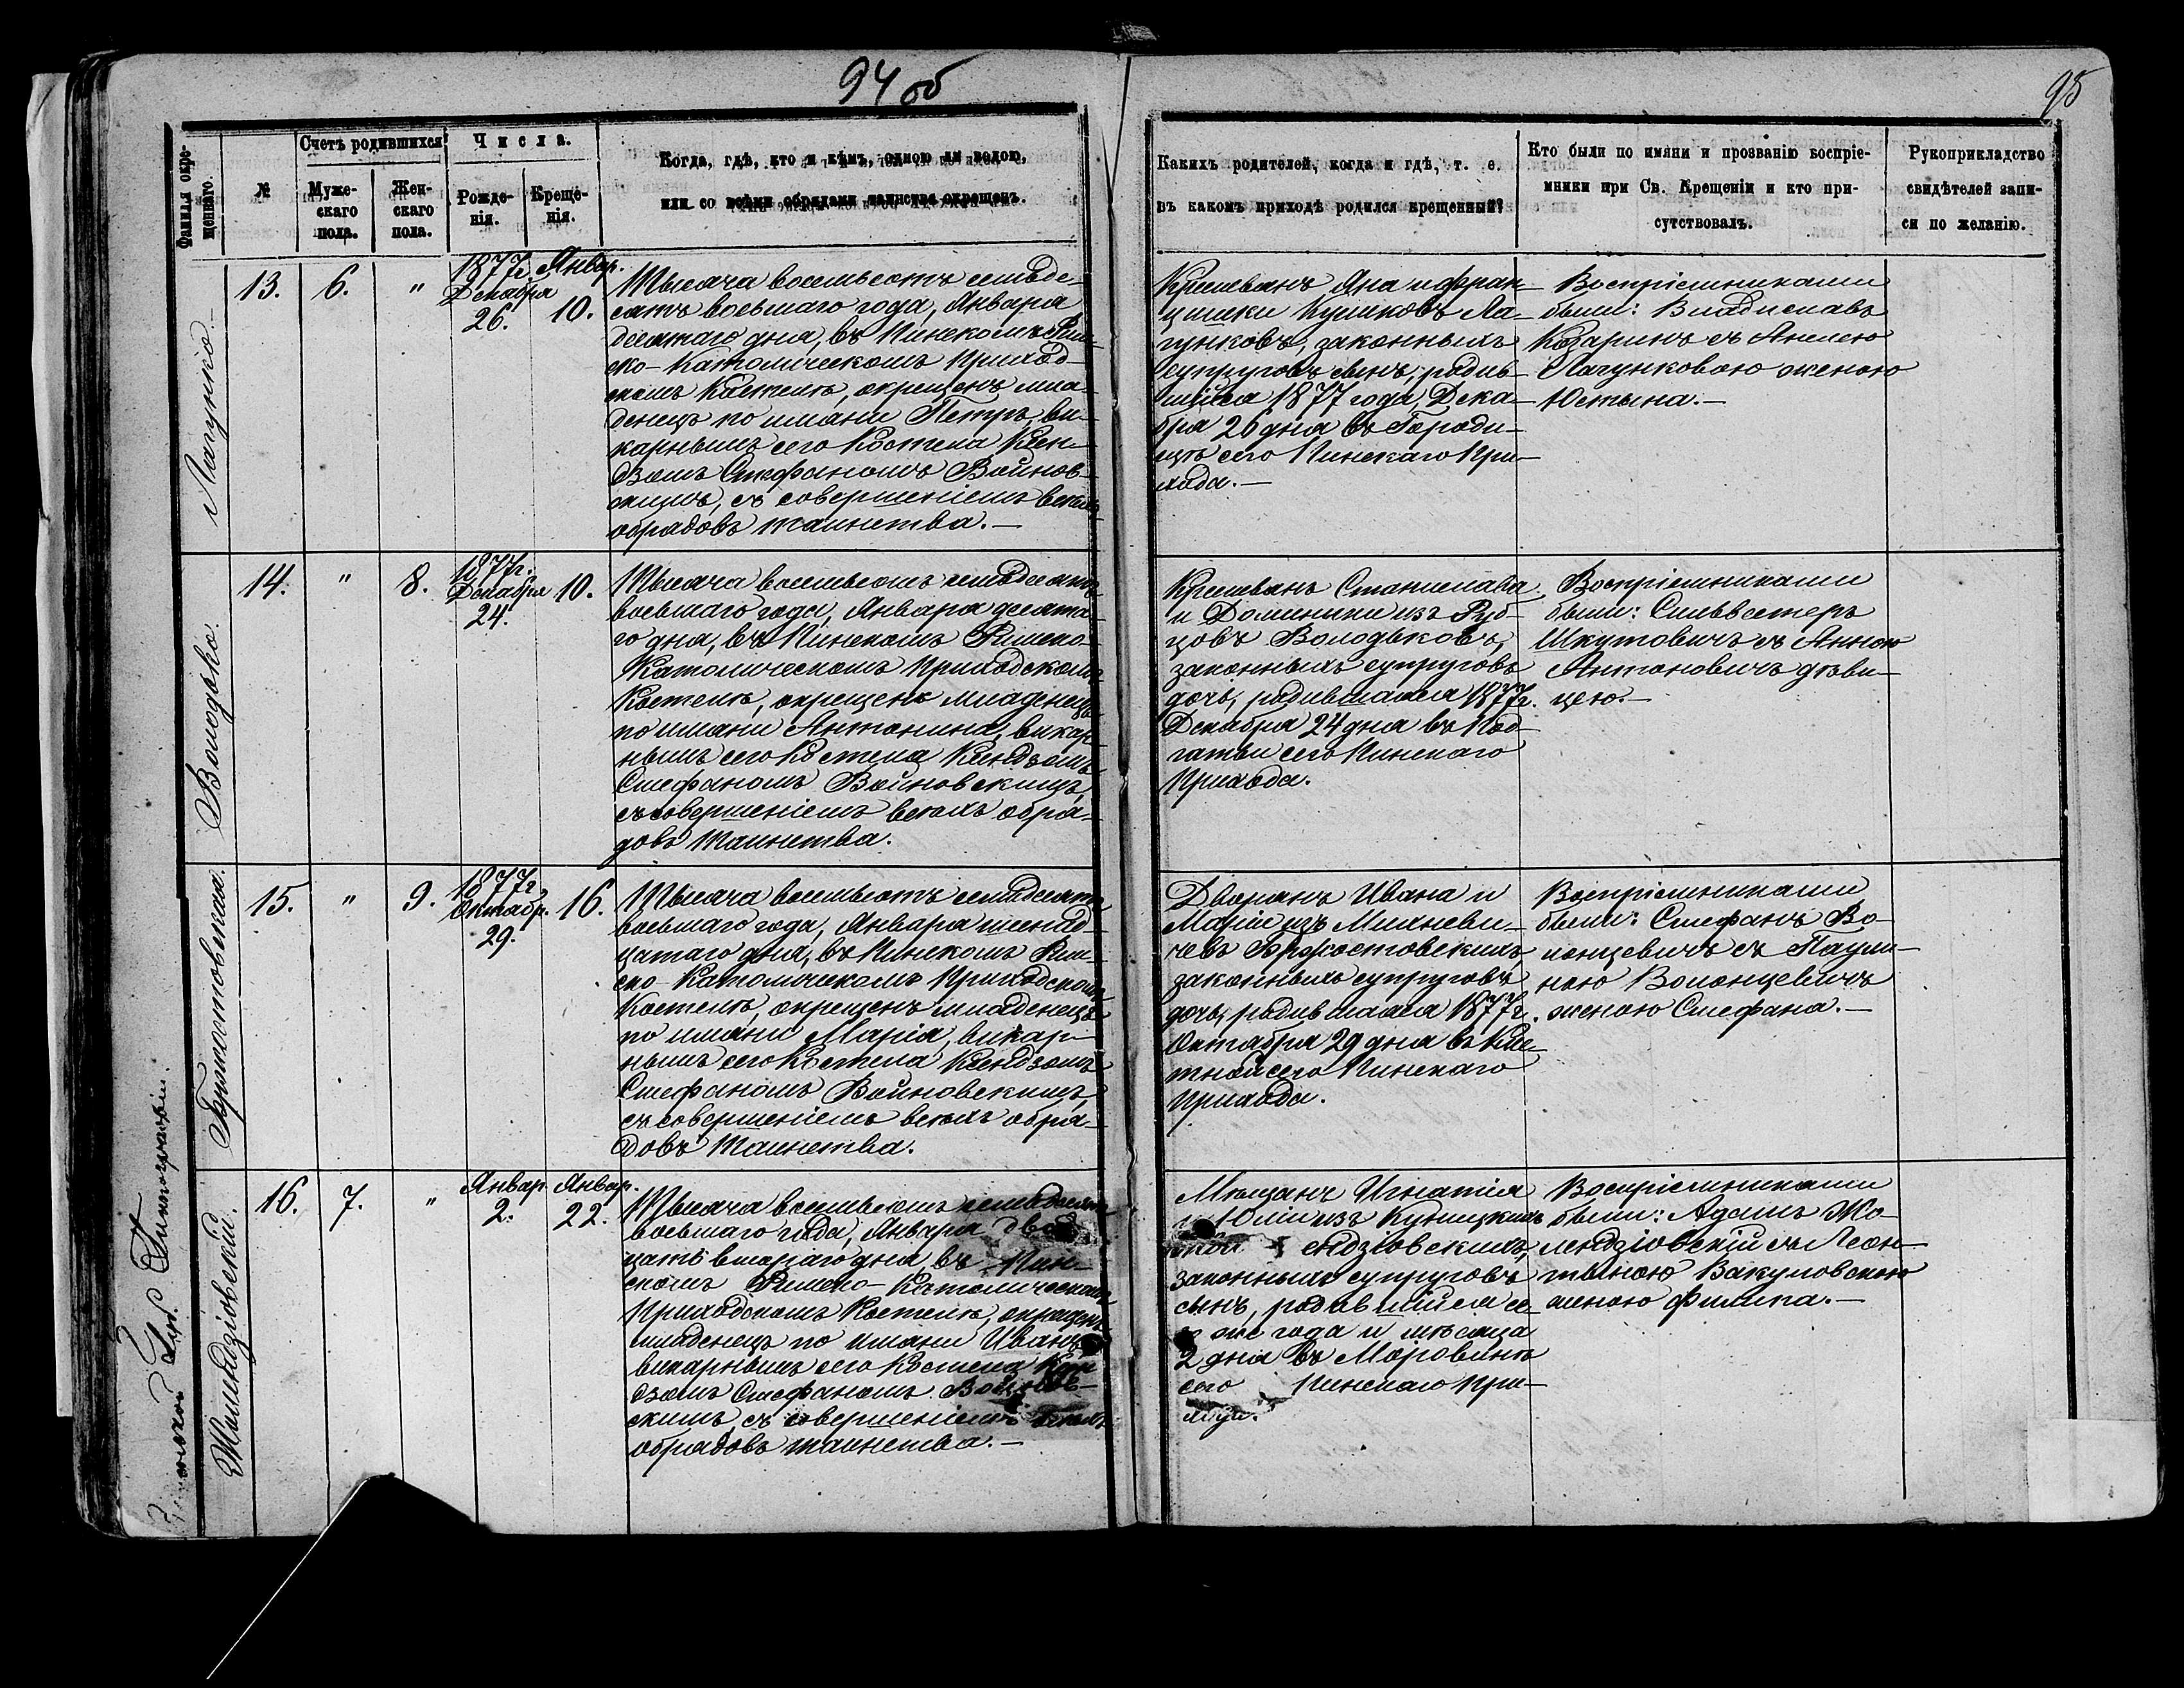 94 об
95
Фамилія окре-
щеннаго.
№
Счетъ родившихся
Муже-
скаго
пола.
Жен-
скаго
пола.
Числа.
Рожде-
нія.
Креще-
нія.
Когда, гдѣ, кто и кѣмъ, одною ли водою,
или со всѣми обрядами таинства окрещенъ.
Какихъ родителей, когда и гдѣ, т. е.
въ какомъ приходѣ родился крещенный?
Кто были по имяни и прозванію воспріе-
мники при Св. Крещеніи и кто при-
сутствовалъ.
Рукоприкладство
свидѣтелей запи-
си по желанію.
Лагунко.
13.
6.
"
1877г.
Декабря
26.
Январ.
10.
Тысяча восемьсотъ семьде-
сятъ восьмаго года, Января
десятаго дня, въ Пинскомъ Рим-
ско-Католическомъ Приход-
скомъ Костелѣ, окрещенъ мла-
денецъ по имяни Петръ, ви-
карнымъ сего Костела Ксен-
дзомъ Стефаномъ Войнов-
скимъ, съ совершеніемъ всѣхъ
обрядовъ таинства.—
Крестьянъ Яна и Фран-
цишки Кушковъ Ла-
гунковъ, законныхъ
супруговъ сынъ, родив-
шійся 1877 года, Дека-
бря 26 дня въ Городи-
щѣ сего Пинскаго При-
хода.—
Воспріемниками
были: Владиславъ
Козаринъ съ Анелею
Лагунковою женою
Юстына.—
Володько.
14.
"
8.
1877г.
Декабря
24.
10.
Тысяча восемьсотъ семьдесятъ
восьмаго года, Января десята-
го дня, въ Пинскомъ Римско-
Католическомъ Приходскомъ
Костелѣ, окрещенъ младенецъ
по имяни Антонина, викар-
нымъ сего Костела Ксендзомъ
Стефаномъ Войновскимъ,
съ совершеніемъ всѣхъ обря-
довъ таинства.
Крестьянъ Станислава
и Доминики изъ Руб-
цовъ Володьковъ,
законныхъ супруговъ
дочь, родившаяся 1877г.
Декабря 24 дня въ Под-
гатьи сего Пинскаго
Прихода.
Воспріемниками
были: Сильвестеръ
Шкутовичъ съ Анною
Антоновичъ дѣви-
цею.—
Бржостовская.
15.
"
9.
1877г.
Октябр.
29.
16.
Тысяча восемьсотъ семьдесятъ
восьмаго года, Января шеснад-
цатаго дня, въ Пинскомъ Рим-
ско-Католическомъ Приходскомъ
Костелѣ, окрещенъ младенецъ
по имяни Марія, викар-
нымъ сего Костела Ксендзомъ
Стефаномъ Войновскимъ,
съ совершеніемъ всѣхъ обря-
довъ таинства.
Дворянъ Ивана и
Маріи изъ Михневи-
чевъ Бржостовскихъ,
законныхъ супруговъ
дочь, родившаяся 1877г.
Октября 29 дня въ Кле-
тной сего Пинскаго
Прихода.
Воспріемниками
были: Стефанъ Во-
лонцевичъ съ Паули-
ною Волонцевичъ
женою Стефана.—
Жолендзіовскій.
16.
7.
"
Январ.
2.
Январ.
22.
Тысяча восемьсотъ семьдесятъ
восьмаго года, Января двад-
цать втораго дня, въ Пин-
скомъ Римско-Католическомъ
Приходскомъ Костелѣ, окрещенъ
младенецъ по имяни Иванъ
викарнымъ сего Костела Ксен-
дзомъ Стефаномъ Войнов-
скимъ, съ совершеніемъ всѣхъ
обрядовъ таинства.—
Мѣщанъ Игнатія
и Юліи изъ Кубицкихъ
ендзіовскихъ,
законныхъ супруговъ
сынъ, родившійся се-
го же года и мѣсяца
2 дня въ Моровинѣ
сего Пинскаго При-
хода.
Воспріемниками
были: Адамъ Жо-
лендзіовскій съ Леон-
тыною Вакуловскою
женою Филипа.—
Типографіи.